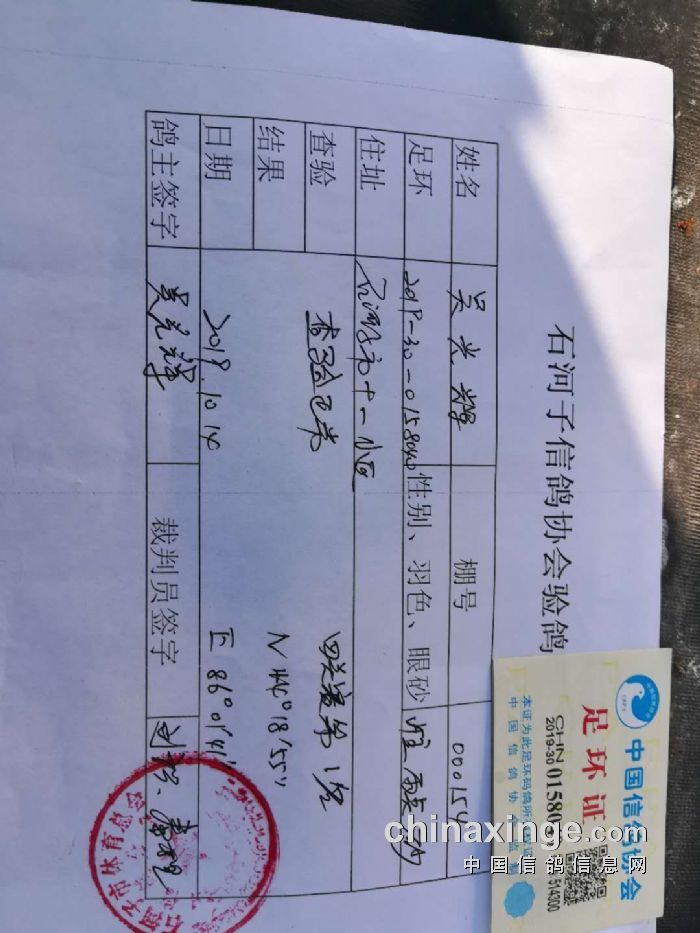 石河子信鸽协会验鸽
姓名 吴光辉 棚号 000154
足环 2019-30-0158040 性别、羽色、眼砂 雌
住址 石河子市十一小区
查验 查验正常
结果 N 44°18′55″
日期 2019.10.14 E 86°01′41″
鸽主签字 吴光辉 裁判员签字
中国信鸽协会
足环证
CHN
2019-30 01580
本证为此足环码鸽所
中国信鸽协
514300
石河子市体育总会
chinaxinge.com
中国信鸽信息网